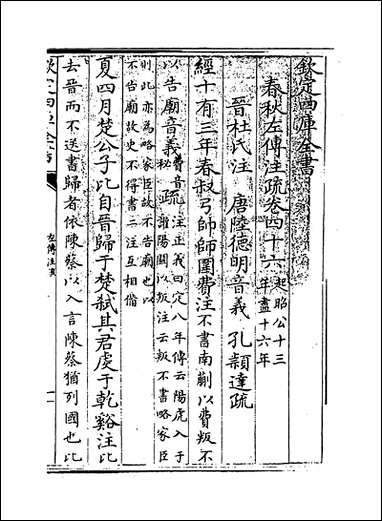 欽定四庫全書
春秋左傳注疏卷四十六 起昭公十三
年盡十六年
晉杜氏注 唐陸德明音義 孔穎達疏
經十有三年春叔弓帥師圍費注不書南蒯以費叛不
以告廟音義費音祕疏注正義曰定八年傳云陽虎入于
讙陽關以叛注云叛不書略家臣
則此亦為略家臣故不告廟也以
不告廟故史不得書二注互相備
夏四月楚公子比自晉歸于楚弒其君虔于乾谿注比
去晉而不送書歸者依陳蔡以入言陳蔡猶列國也比
欽定四庫全書
左傳注疏
一